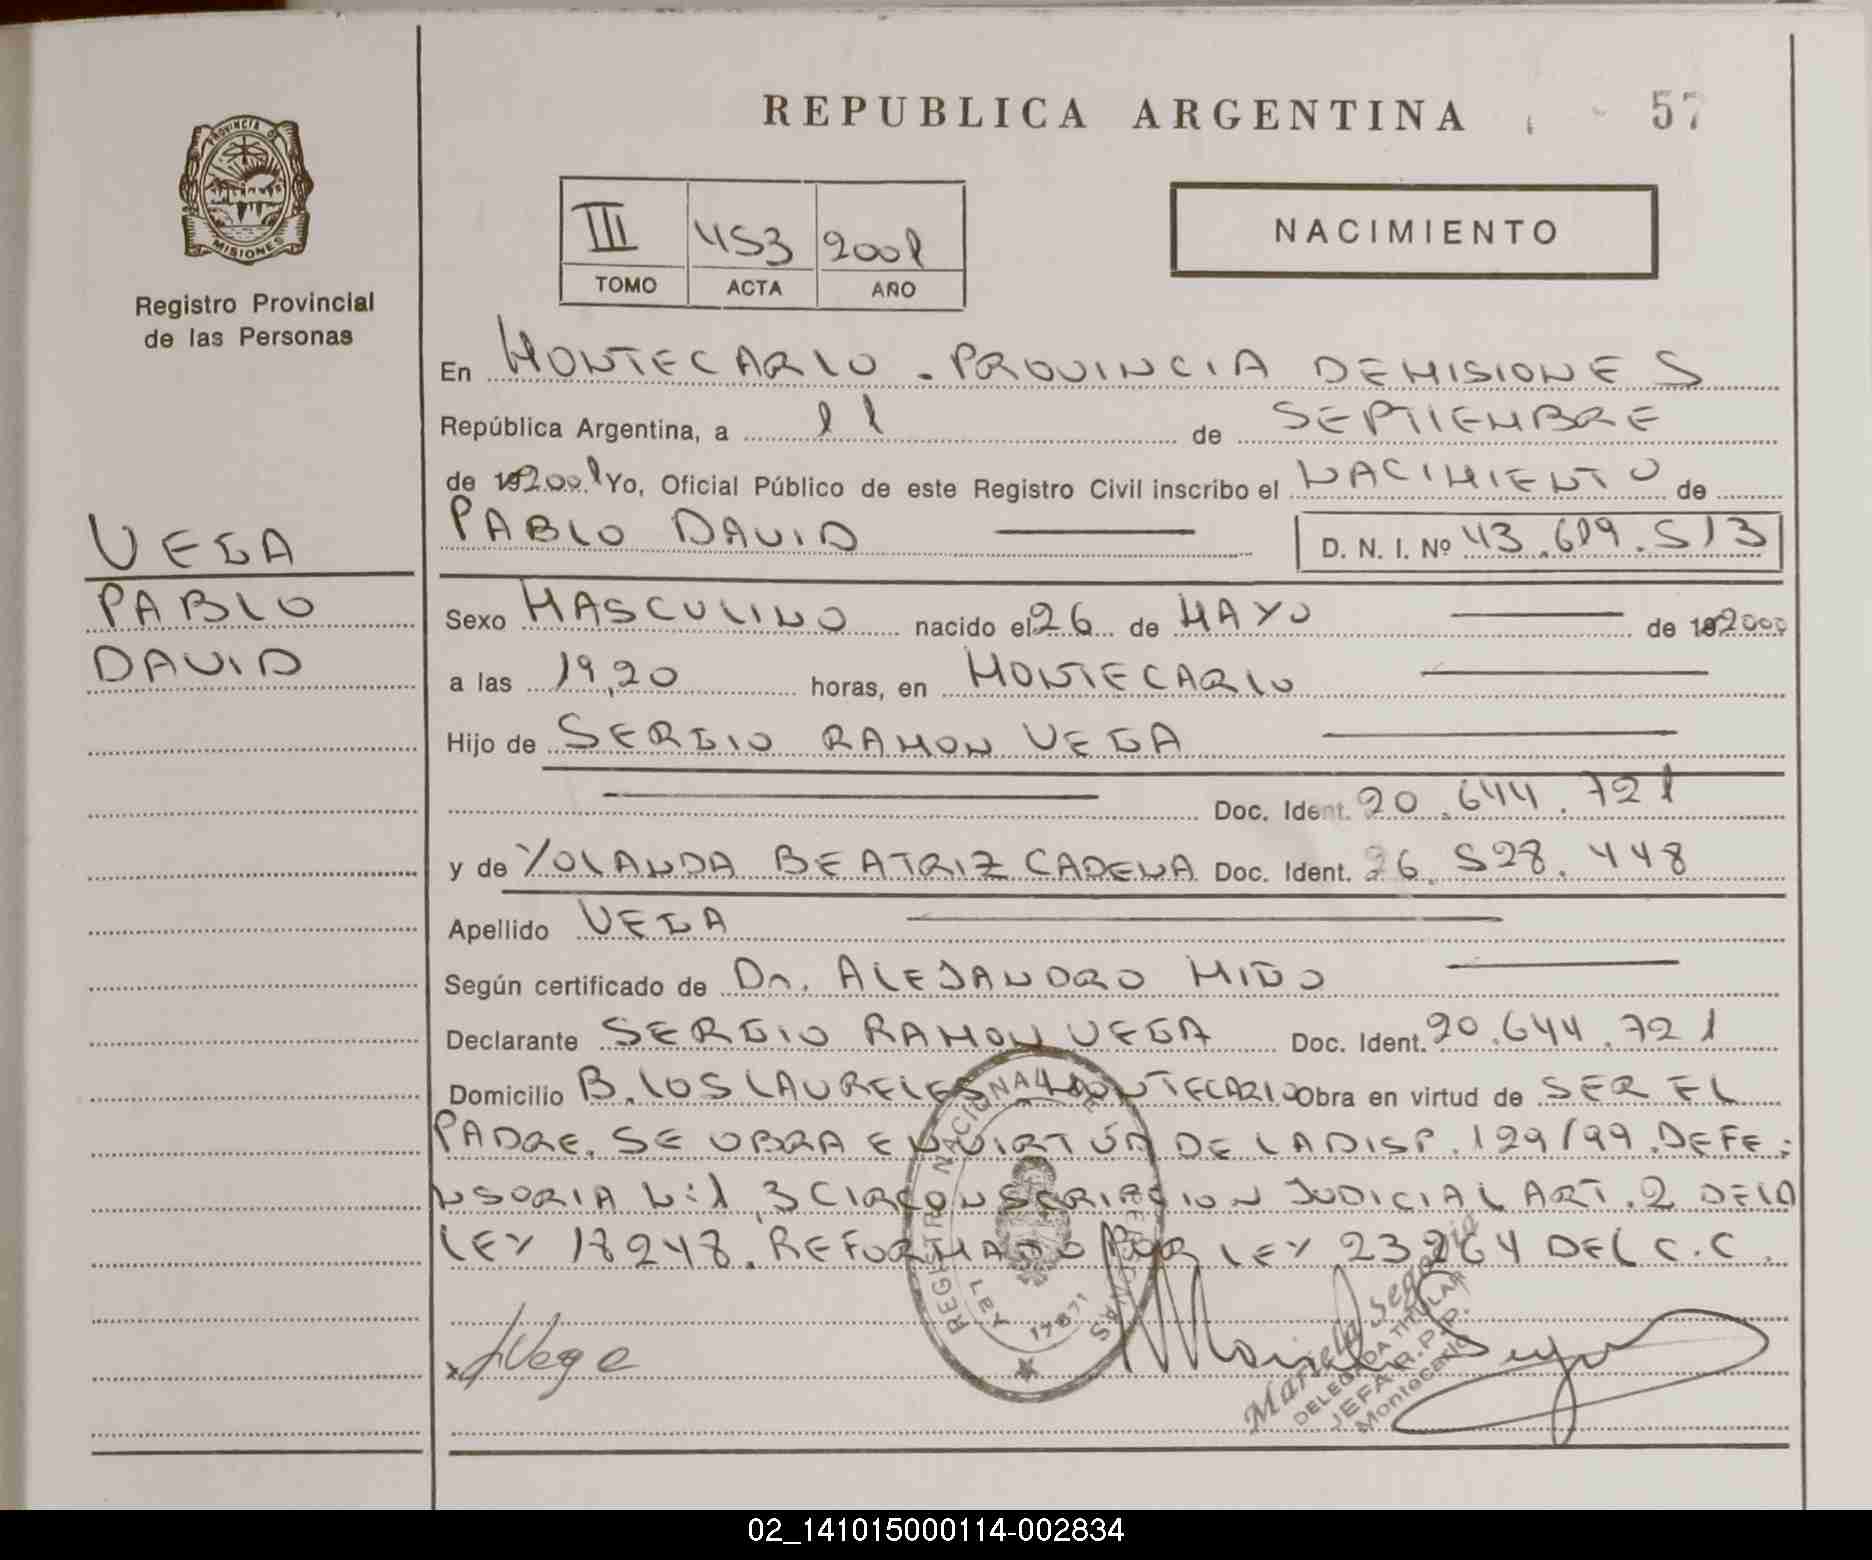 REPUBLICA ARGENTINA
57
PROVINCIA DE
MISIONES
Registro Provincial
de las Personas
III 453 2001
TOMO ACTA AÑO
NACIMIENTO
En MONTECARLO - PROVINCIA DE MISIONES
República Argentina, a 11 de SEPTIEMBRE
de 192001 Yo, Oficial Público de este Registro Civil inscribo el NACIMIENTO de
PABLO DAVID D. N. I. Nº 43.619.513
VEGA
PABLO
DAVID
Sexo MASCULINO nacido el 26 de MAYO de 192000
a las 19,20 horas, en MONTECARLO
Hijo de SERGIO RAMON VEGA
Doc. Ident. 20.644.721
y de YOLANDA BEATRIZ CADENA Doc. Ident. 26.528.448
Apellido VEGA
Según certificado de Dr. ALEJANDRO MIÑO
Declarante SERGIO RAMON VEGA Doc. Ident. 20.644.721
Domicilio B. LOS LAURELES MONTECARLO Obra en virtud de SER EL
PADRE. SE OBRA EN VIRTUD DE LA DISP. 129/99. DEFE-
NSORIA N:1 3 CIRCONSCRIPCION JUDICIAL ART. 2 DE LA
LEY 18248. REFORMADO POR LEY 23264 DEL C.C.
REGISTRO NACIONAL DE LAS PERSONAS
LEY 17671
Vega
Mariela Segovia
DELEGADA TITULAR
JEFA R.P.P.
Montecarlo
02_141015000114-002834